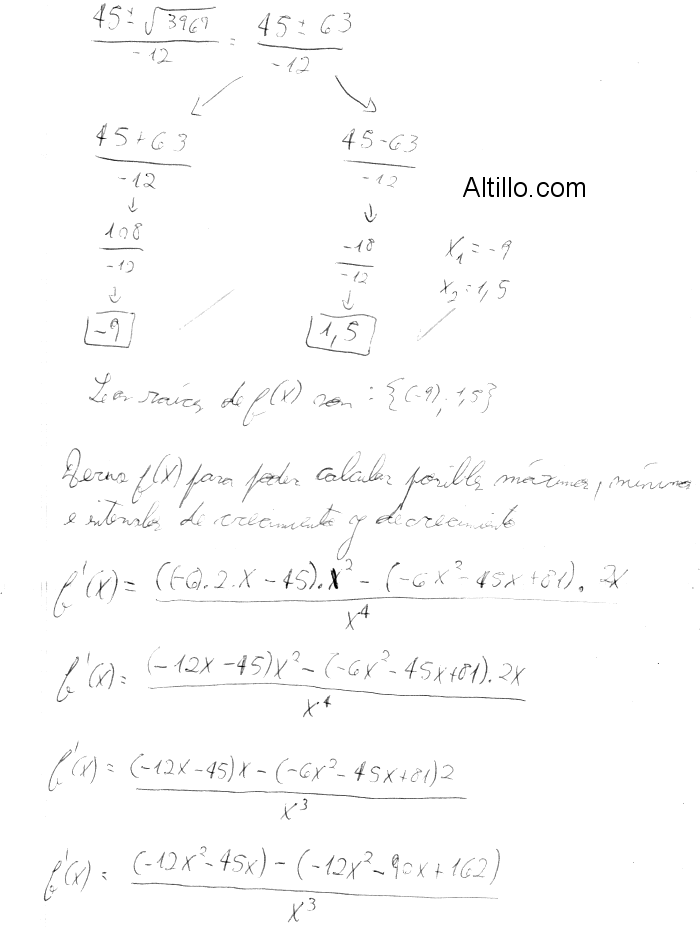 45 ± √3969 / -12 = 45 ± 63 / -12
45 + 63 / -12    45 - 63 / -12
Altillo.com
108 / -12    -18 / -12    x₁ = -9
x₂ = 1,5
-9    1,5
Las raíces de f(x) son : {(-9) ; 1,5}
Derivo f(x) para poder calcular posibles máximos, mínimos
e intervalos de crecimiento y decrecimiento
f'(x) = ((-6).2.x - 45).x² - (-6x² - 45x + 81).2x / x⁴
f'(x) = (-12x - 45)x² - (-6x² - 45x + 81).2x / x⁴
f'(x) = (-12x - 45)x - (-6x² - 45x + 81)2 / x³
f'(x) = (-12x² - 45x) - (-12x² - 90x + 162) / x³